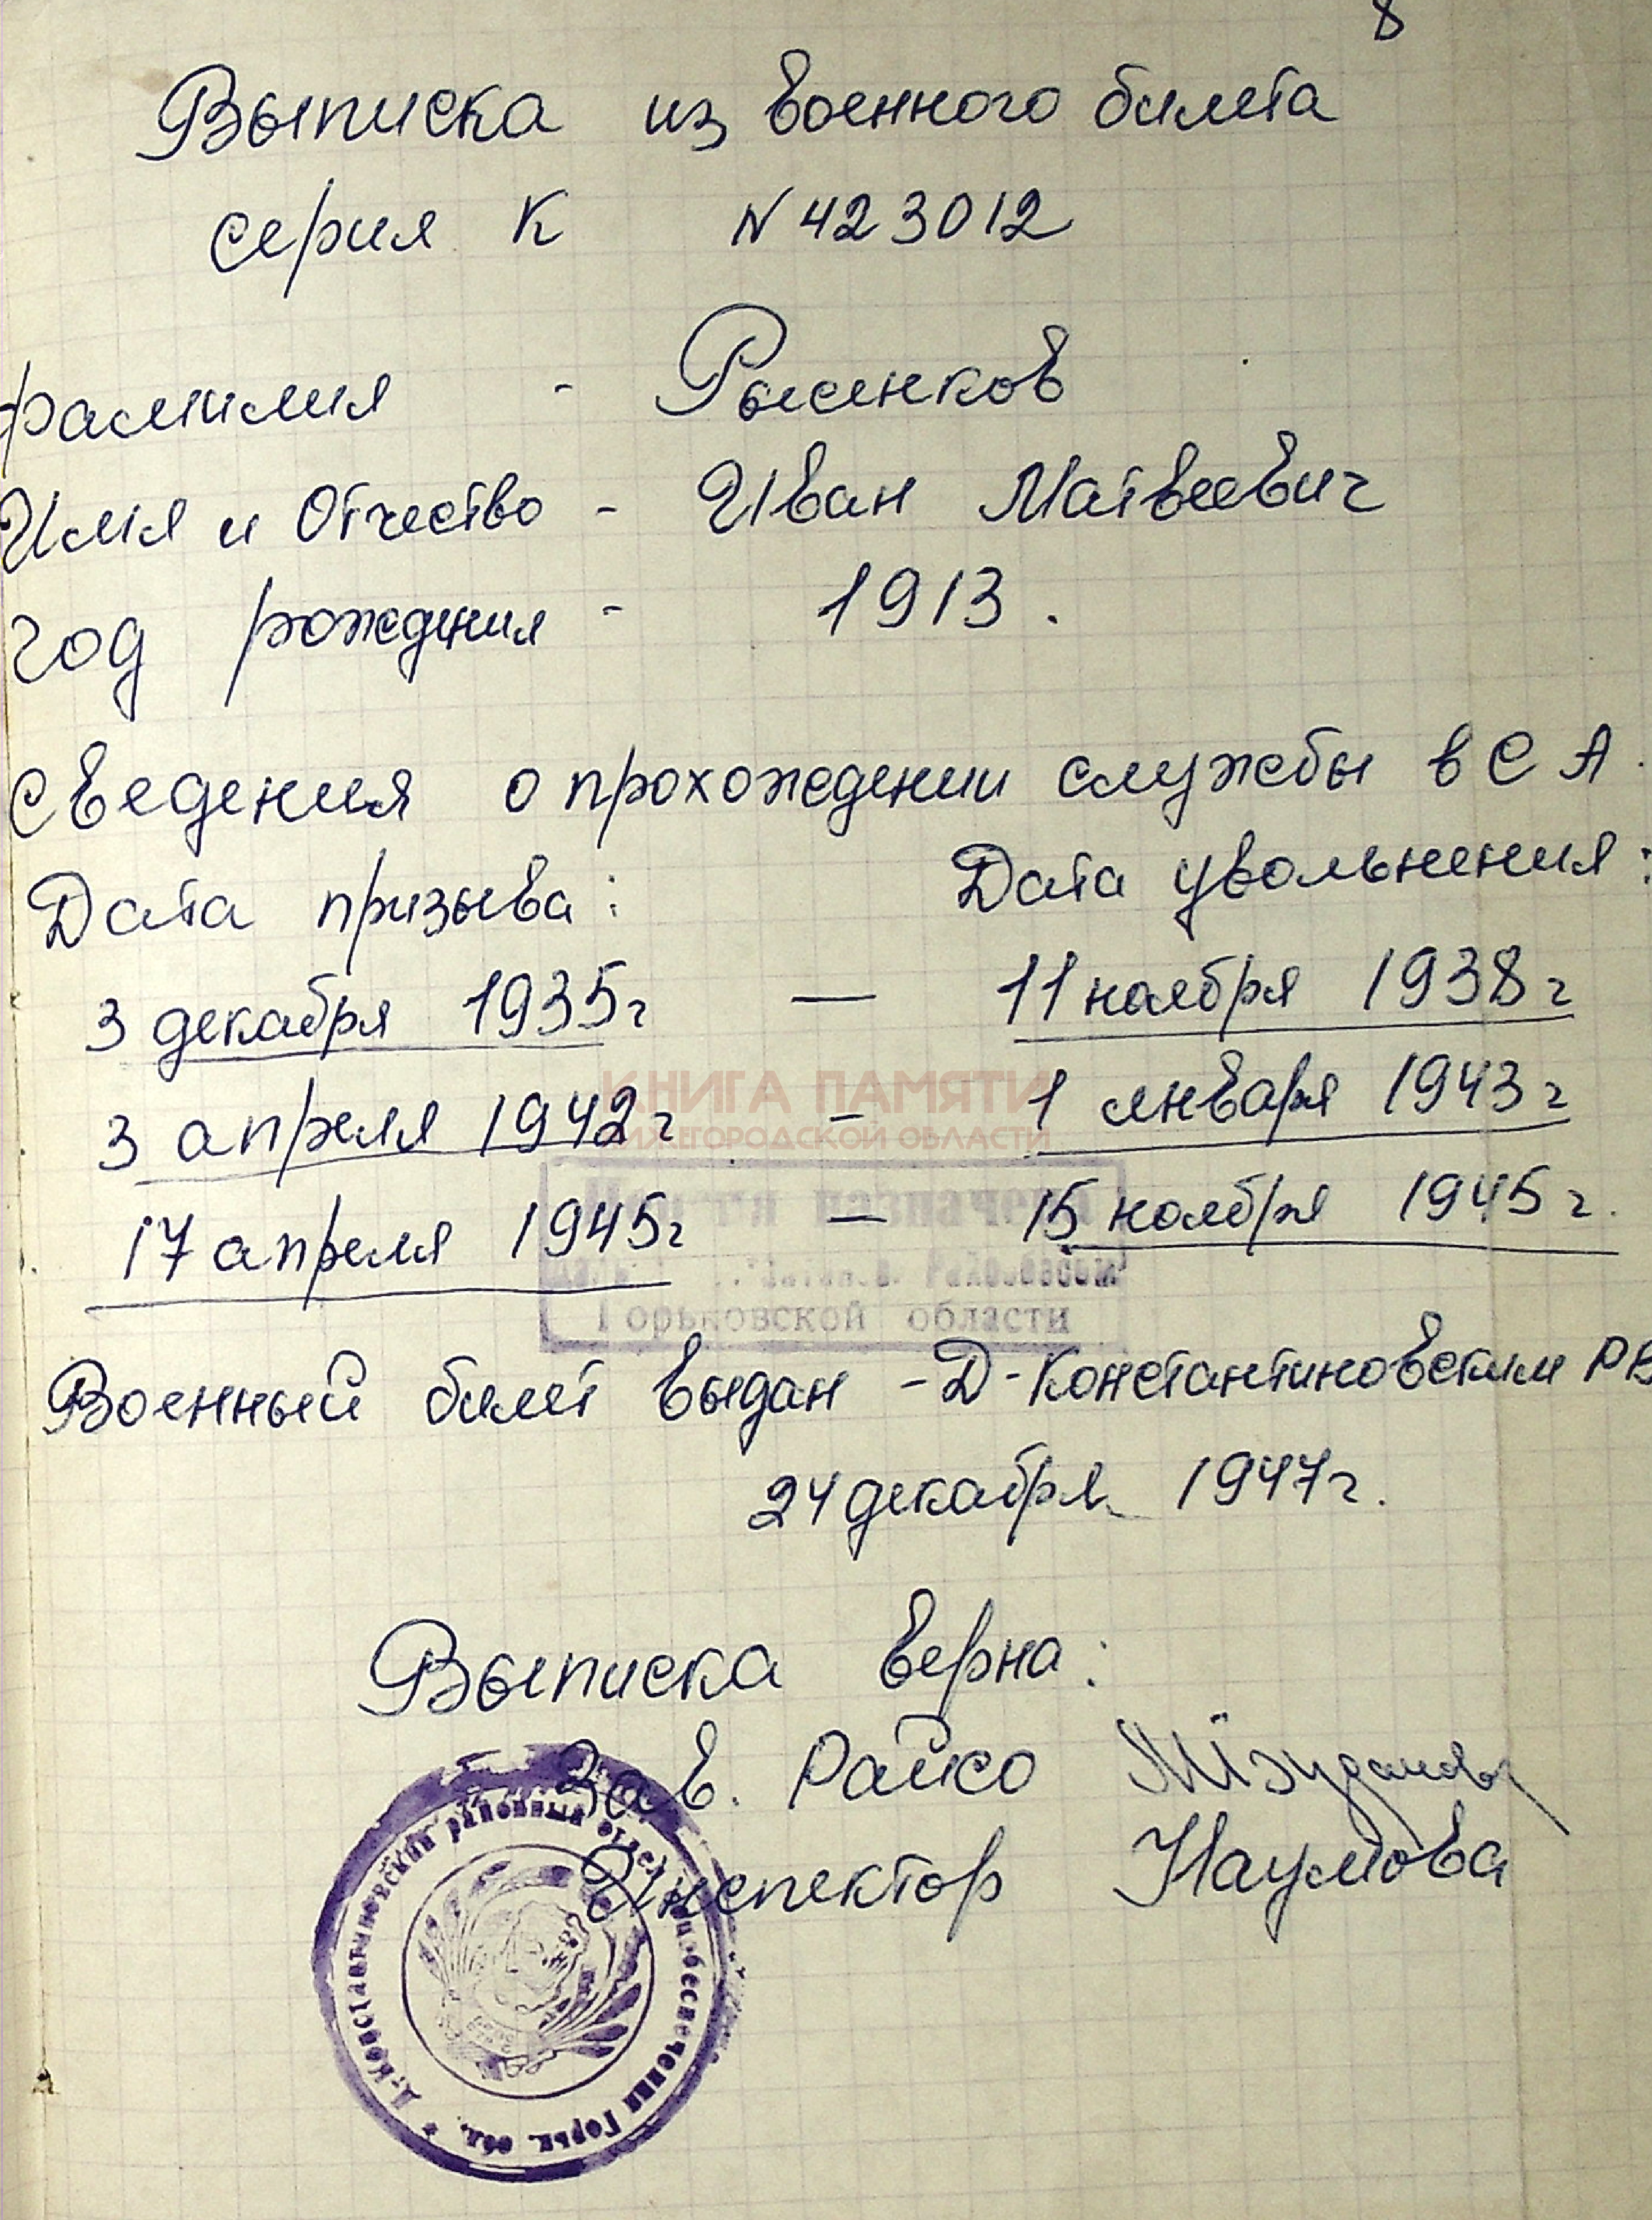 8
Выписка из военного билета
серия К N 423012
фамилия - Рысенков
Имя и Отчество - Иван Матвеевич
год рождения - 1913.
Сведения о прохождении службы в СА.
Дата призыва: Дата увольнения:
3 декабря 1935г — 11 ноября 1938г
КНИГА ПАМЯТИ
НИЖЕГОРОДСКОЙ ОБЛАСТИ
3 апреля 1942г - 1 января 1943г
назначена
17 апреля 1945г — 15 ноября 1945г.
Горьковской области
Военный билет выдан - Д-Константиновским РВ
24 декабря 1947г.
Выписка верна:
Зав. Райсо
Инспектор Наумова
Д.-Константиновский районный отдел соцобеспечения Горьк. обл.